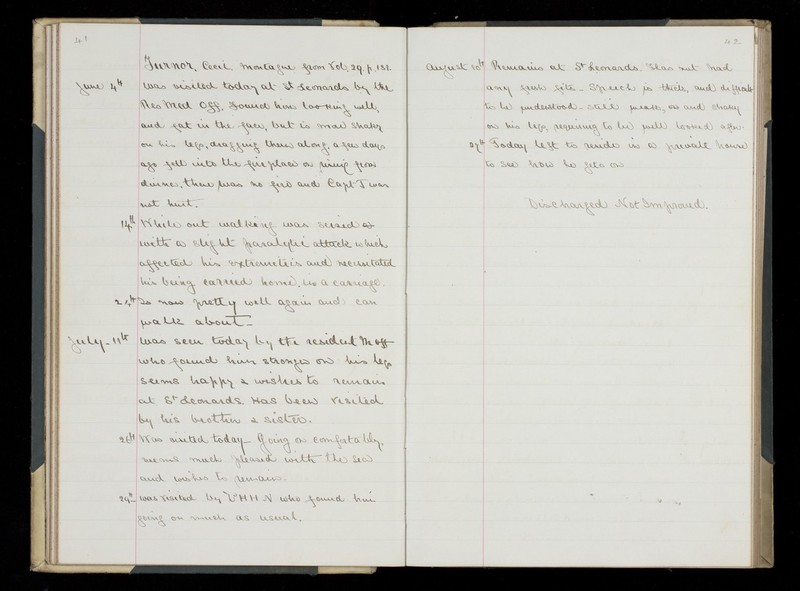 41
Turnor, Cecil Montague from Vol. 29. p. 132
June 4th was visited today at St Leonards by the
Res Med Off, Found him looking well,
and fat in the face, but is more shaky
on his legs, dragging them along, a few days
ago fell into the fireplace on rising from
dinner, there was no fire and Capt T was
not hurt.
14th While out walking was seized
with a slight paralytic attack which
affected his extremities and necessitated
his being carried home, in a carriage.
24th Is now pretty well again and can
walk about _
July 11th was seen today by the resident M off
who found him stronger on his legs
seems happy & wishes to remain
at St Leonards. Has been visited
by his brother & sister.
26th Was visited today _ Going on comfortably,
seems much pleased with the sea
and wishes to remain.
29th was visited by Dr H H N who found him
going on much as usual.
42
August 10th Remains at St Leonards. Has not had
any fresh fits. Speech is thick, and difficult
to be understood. Still weak, on and shaky
on his legs requiring to be well looked after.
27th Today left to reside in a private house
to see how he gets on
Discharged Not Improved.